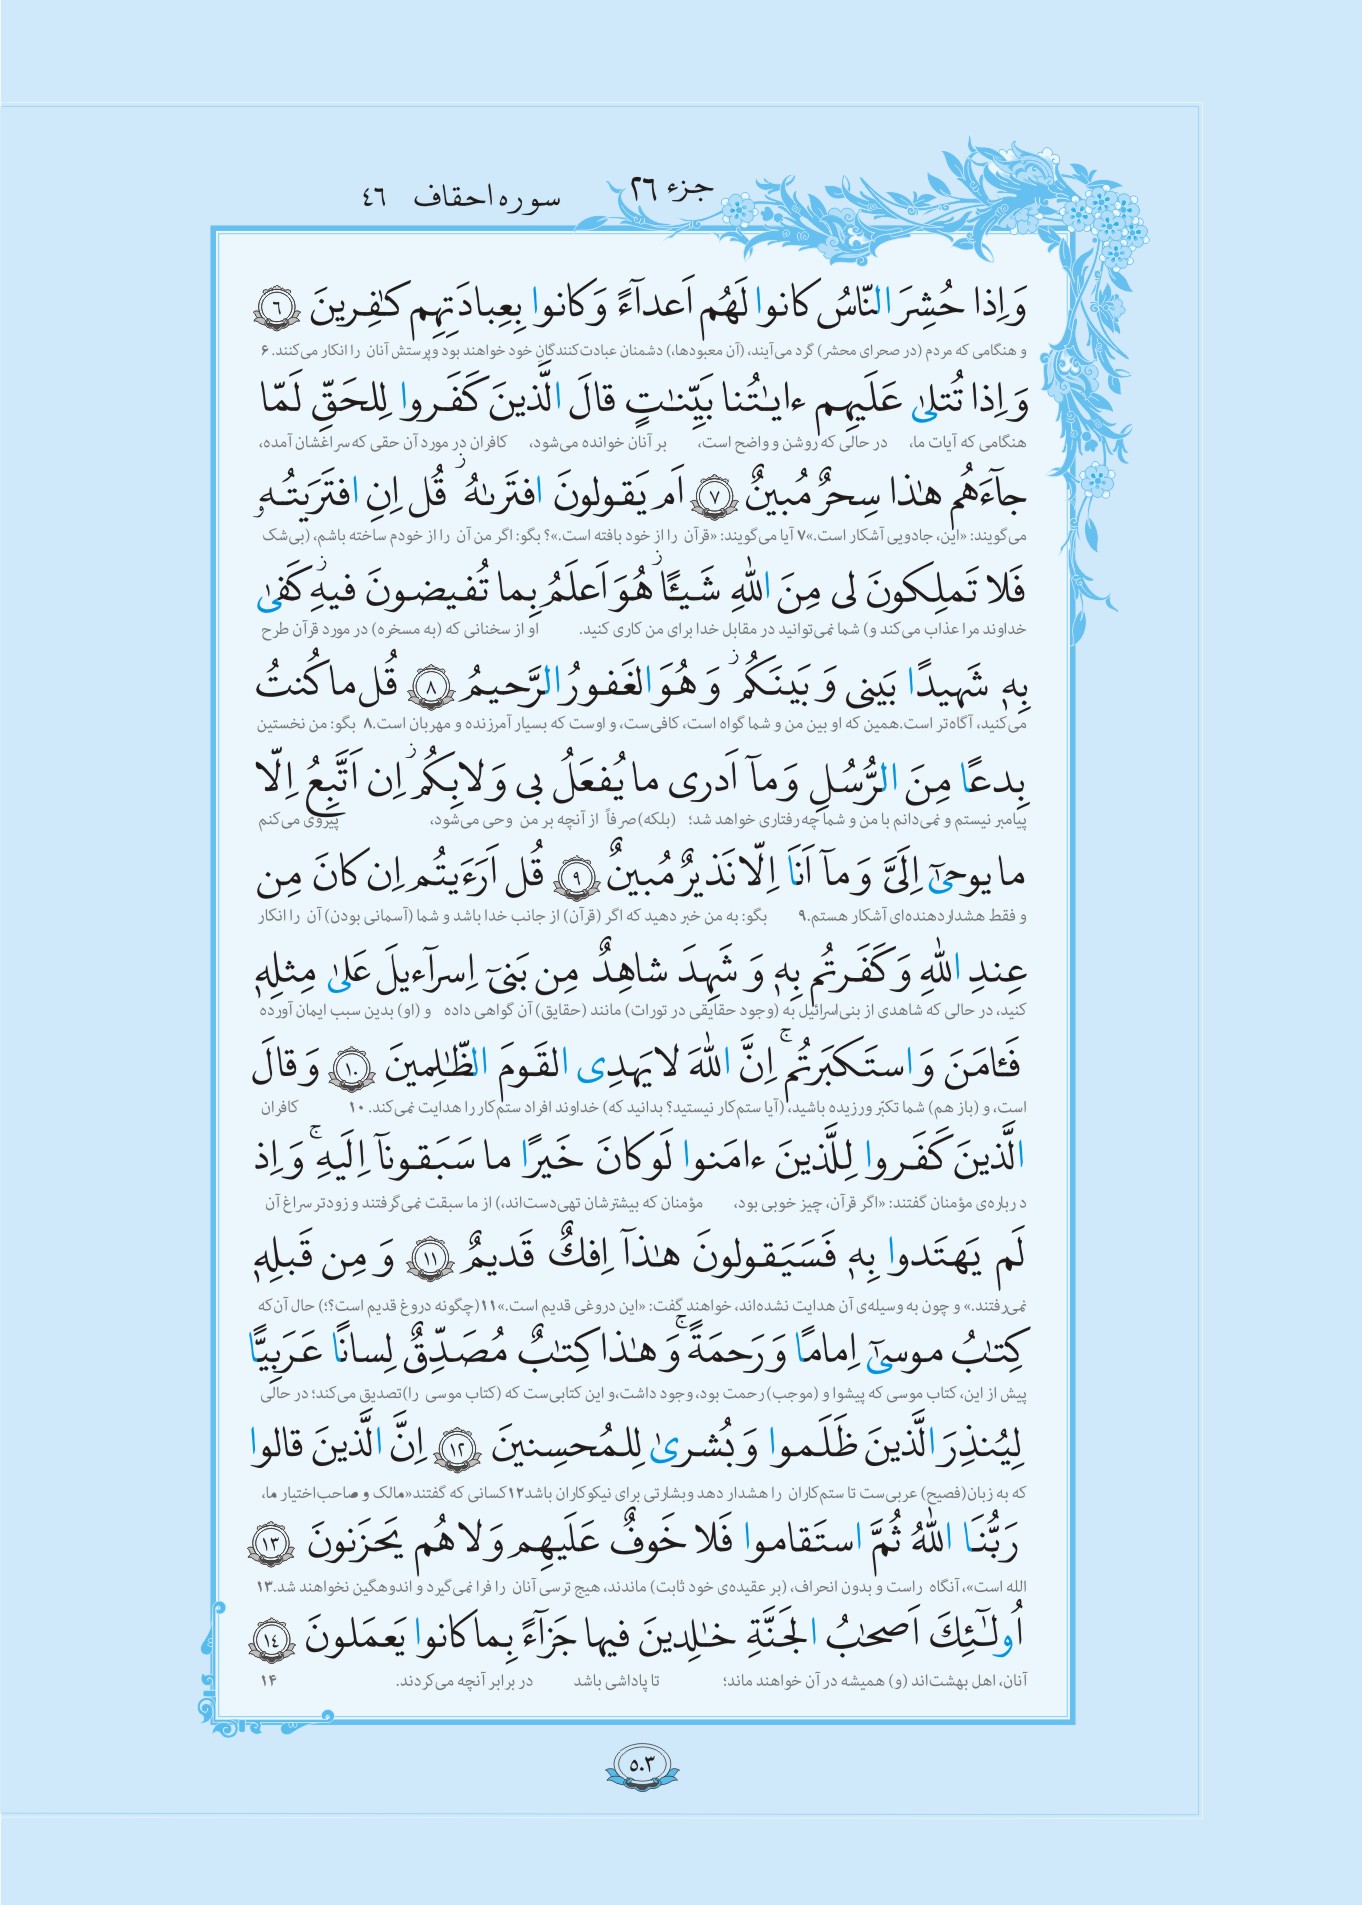 جزء ٢٦
سوره احقاف ٤٦
وَ اِذا حُشِرَ النّاسُ كانوا لَهُم اَعداۤءً وَ كانوا بِعِبادَتِهِم كٰفِرينَ ٦
و هنگامی که مردم (در صحرای محشر) گرد می‌آیند، (آن معبودها،) دشمنان عبادت‌کنندگان خود خواهند بود و پرستش آنان را انکار می‌کنند. ۶
وَ اِذا تُتلىٰ عَلَيهِم ءايٰتُنا بَيِّنٰتٍ قالَ الَّذينَ كَفَروا لِلحَقِّ لَمّا
هنگامی که آیات ما، در حالی که روشن و واضح است، بر آنان خوانده می‌شود، کافران در مورد آن حقی که سراغشان آمده،
جاۤءَهُم هٰذا سِحرٌ مُبينٌ ٧ اَم يَقولونَ افتَرىٰهُ ۖ قُل اِنِ افتَرَيتُهٗ
می‌گویند: «این، جادویی آشکار است.»۷ آیا می‌گویند: «قرآن را از خود بافته است.»؟ بگو: اگر من آن را از خودم ساخته باشم، (بی‌شک
فَلا تَملِكونَ لى مِنَ اللّٰهِ شَيـًٔا ۖ هُوَ اَعلَمُ بِما تُفيضونَ فيهِ ۖ كَفىٰ
خداوند مرا عذاب می‌کند و) شما نمی‌توانید در مقابل خدا برای من کاری کنید. او از سخنانی که (به مسخره) در مورد قرآن طرح
بِهٖ شَهيدًا بَينى وَ بَينَكُم ۖ وَ هُوَ الغَفورُ الرَّحيمُ ٨ قُل ما كُنتُ
می‌کنید، آگاه‌تر است. همین که او بین من و شما گواه است، کافی‌ست، و اوست که بسیار آمرزنده و مهربان است.۸ بگو: من نخستین
بِدعًا مِنَ الرُّسُلِ وَ ماۤ اَدرى ما يُفعَلُ بى وَ لا بِكُم ۖ اِن اَتَّبِعُ اِلّا
پیامبر نیستم و نمی‌دانم با من و شما چه رفتاری خواهد شد؛ (بلکه) صرفاً از آنچه بر من وحی می‌شود، پیروی می‌کنم
ما يوحىٰۤ اِلَىَّ وَ ماۤ اَنَا اِلّا نَذيرٌ مُبينٌ ٩ قُل اَرَءَيتُم اِن كانَ مِن
و فقط هشداردهنده‌ای آشکار هستم.۹ بگو: به من خبر دهید که اگر (قرآن) از جانب خدا باشد و شما (آسمانی بودن) آن را انکار
عِندِ اللّٰهِ وَ كَفَرتُم بِهٖ وَ شَهِدَ شاهِدٌ مِن بَنىۤ اِسراۤءيلَ عَلىٰ مِثلِهٖ
کنید، در حالی که شاهدی از بنی‌اسرائیل به (وجود حقایقی در تورات) مانند (حقایق) آن گواهی داده و (او) بدین سبب ایمان آورده
فَـٔامَنَ وَ استَكبَرتُم ۚ اِنَّ اللّٰهَ لا يَهدِى القَومَ الظّٰلِمينَ ١٠ وَ قالَ
است، و (باز هم) شما تکبّر ورزیده باشید، (آیا ستم‌کار نیستید؟ بدانید که) خداوند افراد ستم‌کار را هدایت نمی‌کند. ۱۰ کافران
الَّذينَ كَفَروا لِلَّذينَ ءامَنوا لَو كانَ خَيرًا ما سَبَقوناۤ اِلَيهِ ۚ وَ اِذ
درباره‌ی مؤمنان گفتند: «اگر قرآن، چیز خوبی بود، مؤمنان که بیشترشان تهی‌دست‌اند،) از ما سبقت نمی‌گرفتند و زودتر سراغ آن
لَم يَهتَدوا بِهٖ فَسَيَقولونَ هٰذاۤ اِفكٌ قَديمٌ ١١ وَ مِن قَبلِهٖ
نمی‌رفتند.» و چون به وسیله‌ی آن هدایت نشده‌اند، خواهند گفت: «این دروغی قدیم است.»۱۱(چگونه دروغ قدیم است؟؛) حال آن‌که
كِتٰبُ موسىٰۤ اِمامًا وَ رَحمَةً ۚ وَ هٰذا كِتٰبٌ مُصَدِّقٌ لِسانًا عَرَبِيًّا
پیش از این، کتاب موسی که پیشوا و (موجب) رحمت بود، وجود داشت، و این کتابی‌ست که (کتاب موسی را) تصدیق می‌کند؛ در حالی
لِيُنذِرَ الَّذينَ ظَلَموا وَ بُشرىٰ لِلمُحسِنينَ ١٢ اِنَّ الَّذينَ قالوا
که به زبان (فصیح) عربی‌ست تا ستم‌کاران را هشدار دهد و بشارتی برای نیکوکاران باشد۱۲ کسانی که گفتند «مالک و صاحب‌اختیار ما،
رَبُّنَا اللّٰهُ ثُمَّ استَقاموا فَلا خَوفٌ عَلَيهِم وَ لا هُم يَحزَنونَ ١٣
الله است»، آنگاه راست و بدون انحراف، (بر عقیده‌ی خود ثابت) ماندند، هیچ ترسی آنان را فرا نمی‌گیرد و اندوهگین نخواهند شد.۱۳
اُولٰۤئِكَ اَصحٰبُ الجَنَّةِ خٰلِدينَ فيها جَزاۤءً بِما كانوا يَعمَلونَ ١٤
آنان، اهل بهشت‌اند (و) همیشه در آن خواهند ماند؛ تا پاداشی باشد در برابر آنچه می‌کردند. ۱۴
٥٠٣